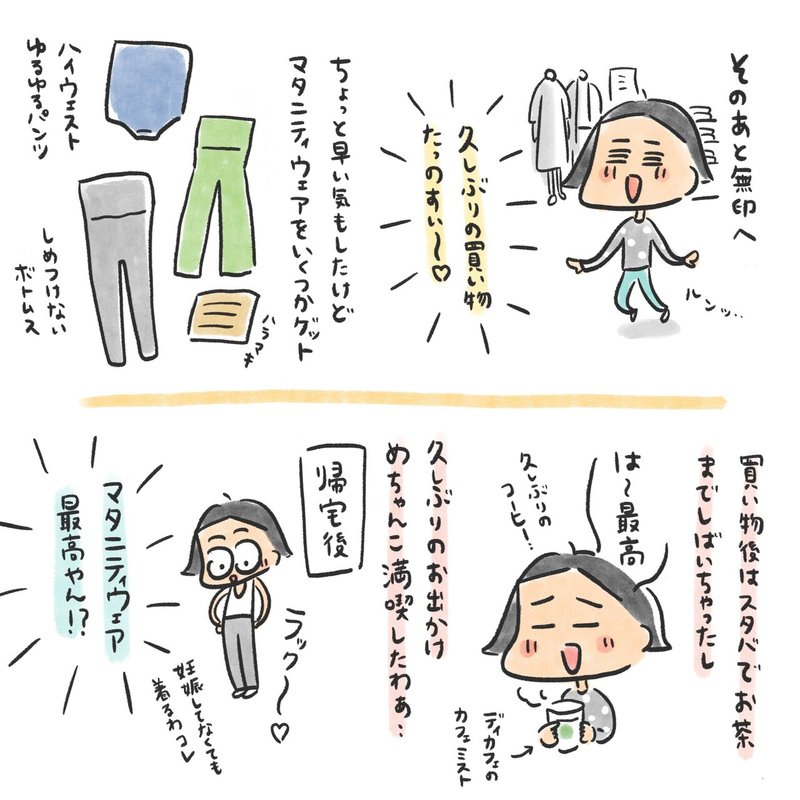 そのあと無印へ
ルンッ‥
久しぶりの買い物
たっのすぃ〜♡
ちょっと早い気もしたけど
マタニティウェアをいくつかゲット
ハイウェスト
ゆるゆるパンツ
しめつけない
ボトムス
ハラマキ
買い物後はスタバでお茶
までしばいちゃったし
は〜最高
久しぶりの
コーヒー‥
ディカフェの
カフェミスト
久しぶりのお出かけ
めちゃんこ満喫したわぁ‥
帰宅後
ラック〜♡
マタニティウェア
最高やん!?
妊娠してなくても
着るわコレ